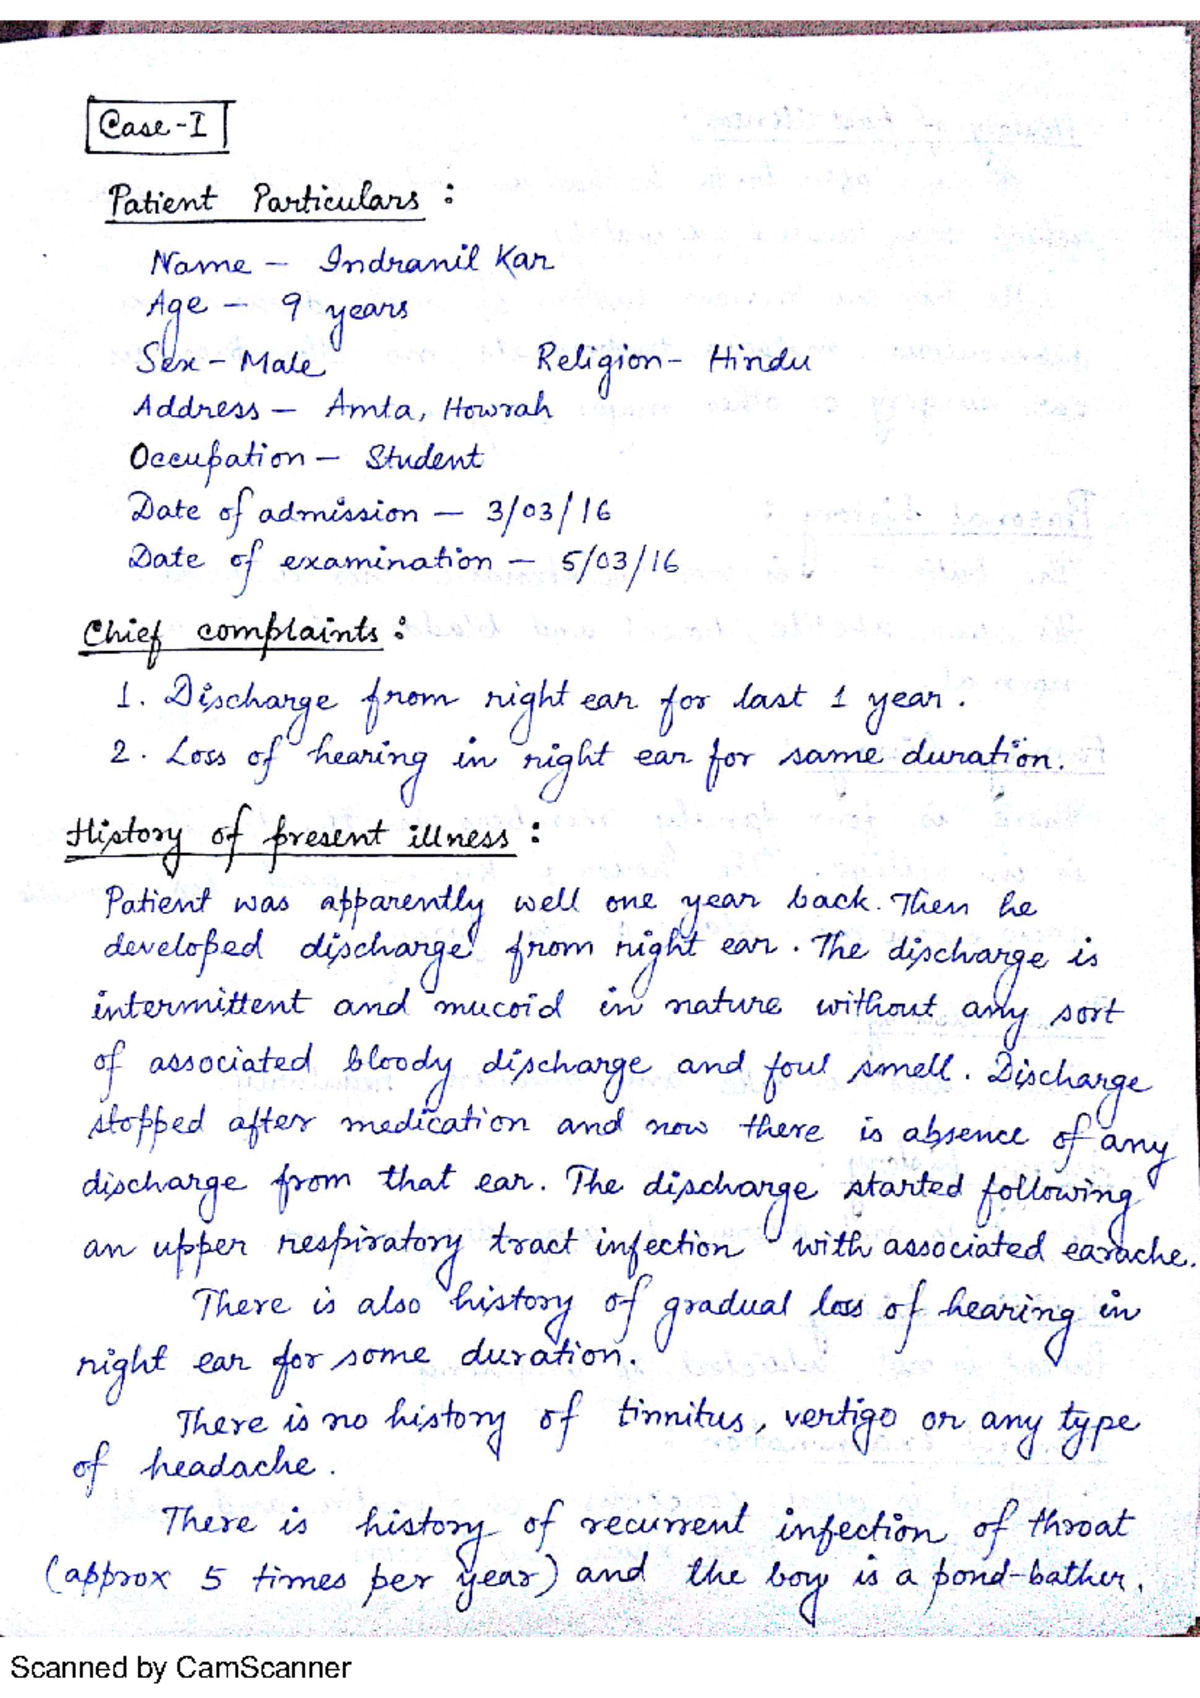 Case-I
Patient Particulars :
Name - Indranil Kar
Age - 9 years
Sex - Male Religion - Hindu
Address - Amta, Howrah
Occupation - Student
Date of admission - 3/03/16
Date of examination - 5/03/16
Chief complaints :
1. Discharge from right ear for last 1 year.
2. Loss of hearing in right ear for same duration.
History of present illness :
Patient was apparently well one year back. Then he
developed discharge from right ear. The discharge is
intermittent and mucoid in nature without any sort
of associated bloody discharge and foul smell. Discharge
stopped after medication and now there is absence of any
discharge from that ear. The discharge started following
an upper respiratory tract infection with associated earache.
There is also history of gradual loss of hearing in
right ear for some duration.
There is no history of tinnitus, vertigo or any type
of headache.
There is history of recurrent infection of throat
(approx 5 times per year) and the boy is a pond-bather.
Scanned by CamScanner